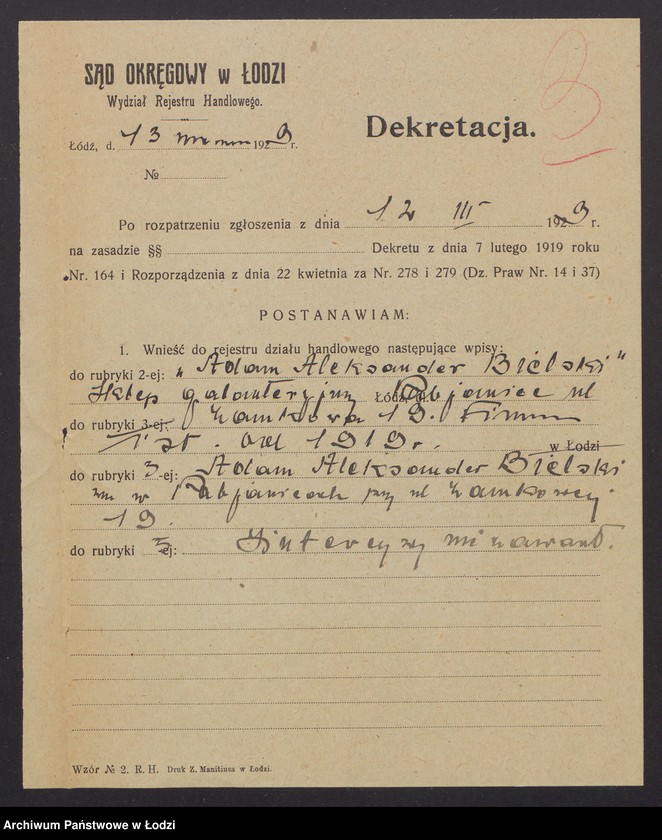 SĄD OKRĘGOWY w ŁODZI
Wydział Rejestru Handlowego.
3
Dekretacja.
Łódź, d. 13 1929 r.
№
Po rozpatrzeniu zgłoszenia z dnia 12 III 1929 r.
na zasadzie §§ Dekretu z dnia 7 lutego 1919 roku
Nr. 164 i Rozporządzenia z dnia 22 kwietnia za Nr. 278 i 279 (Dz. Praw Nr. 14 i 37)
POSTANAWIAM:
1. Wnieść do rejestru działu handlowego następujące wpisy:
do rubryki 2-ej: „Adam Aleksander Bielski"
Sklep galanteryjny Łódź, ul. Pabjanice ul
do rubryki 3-ej: Zamkowa 19. Firma
ist. od 1919 r. w Łodzi
do rubryki 3-ej: Adam Aleksander Bielski
zm w Pabjanicach przy ul Zamkowej
19.
do rubryki 5 ej: Intercyzy nie zawarł.
Wzór № 2. R. H. Druk Z. Manitiusa w Łodzi.
Archiwum Państwowe w Łodzi